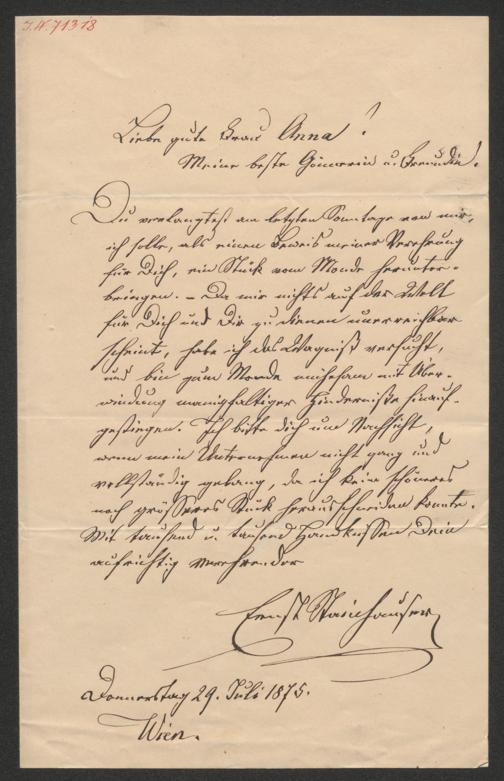 J.N. 71318
Liebe gute Frau Anna!
Meine beste Gönnerin u. Freundin!
Du verlangtest am letzten Sonntage von mir,
ich solle, als einen Beweis meiner Verehrung
für Dich, ein Stück vom Monde herunter-
bringen. – Da mir nichts auf der Welt
für Dich und Dir zu dienen unerreichbar
scheint, habe ich das Wagniß versucht,
und bin zum Monde mühsam mit Über-
windung manigfaltiger Hinderniße hinauf-
gestiegen. Ich bitte Dich um Nachsicht,
wenn mein Unternehmen nicht ganz und
vollständig gelang, da ich kein schöneres
noch grösseres Stück herausschneiden konnte.
Mit tausend u. tausend Handküssen Dein
aufrichtig verehrender
Ernst Stainhauser
Donnerstag 29. Juli 1875.
Wien.